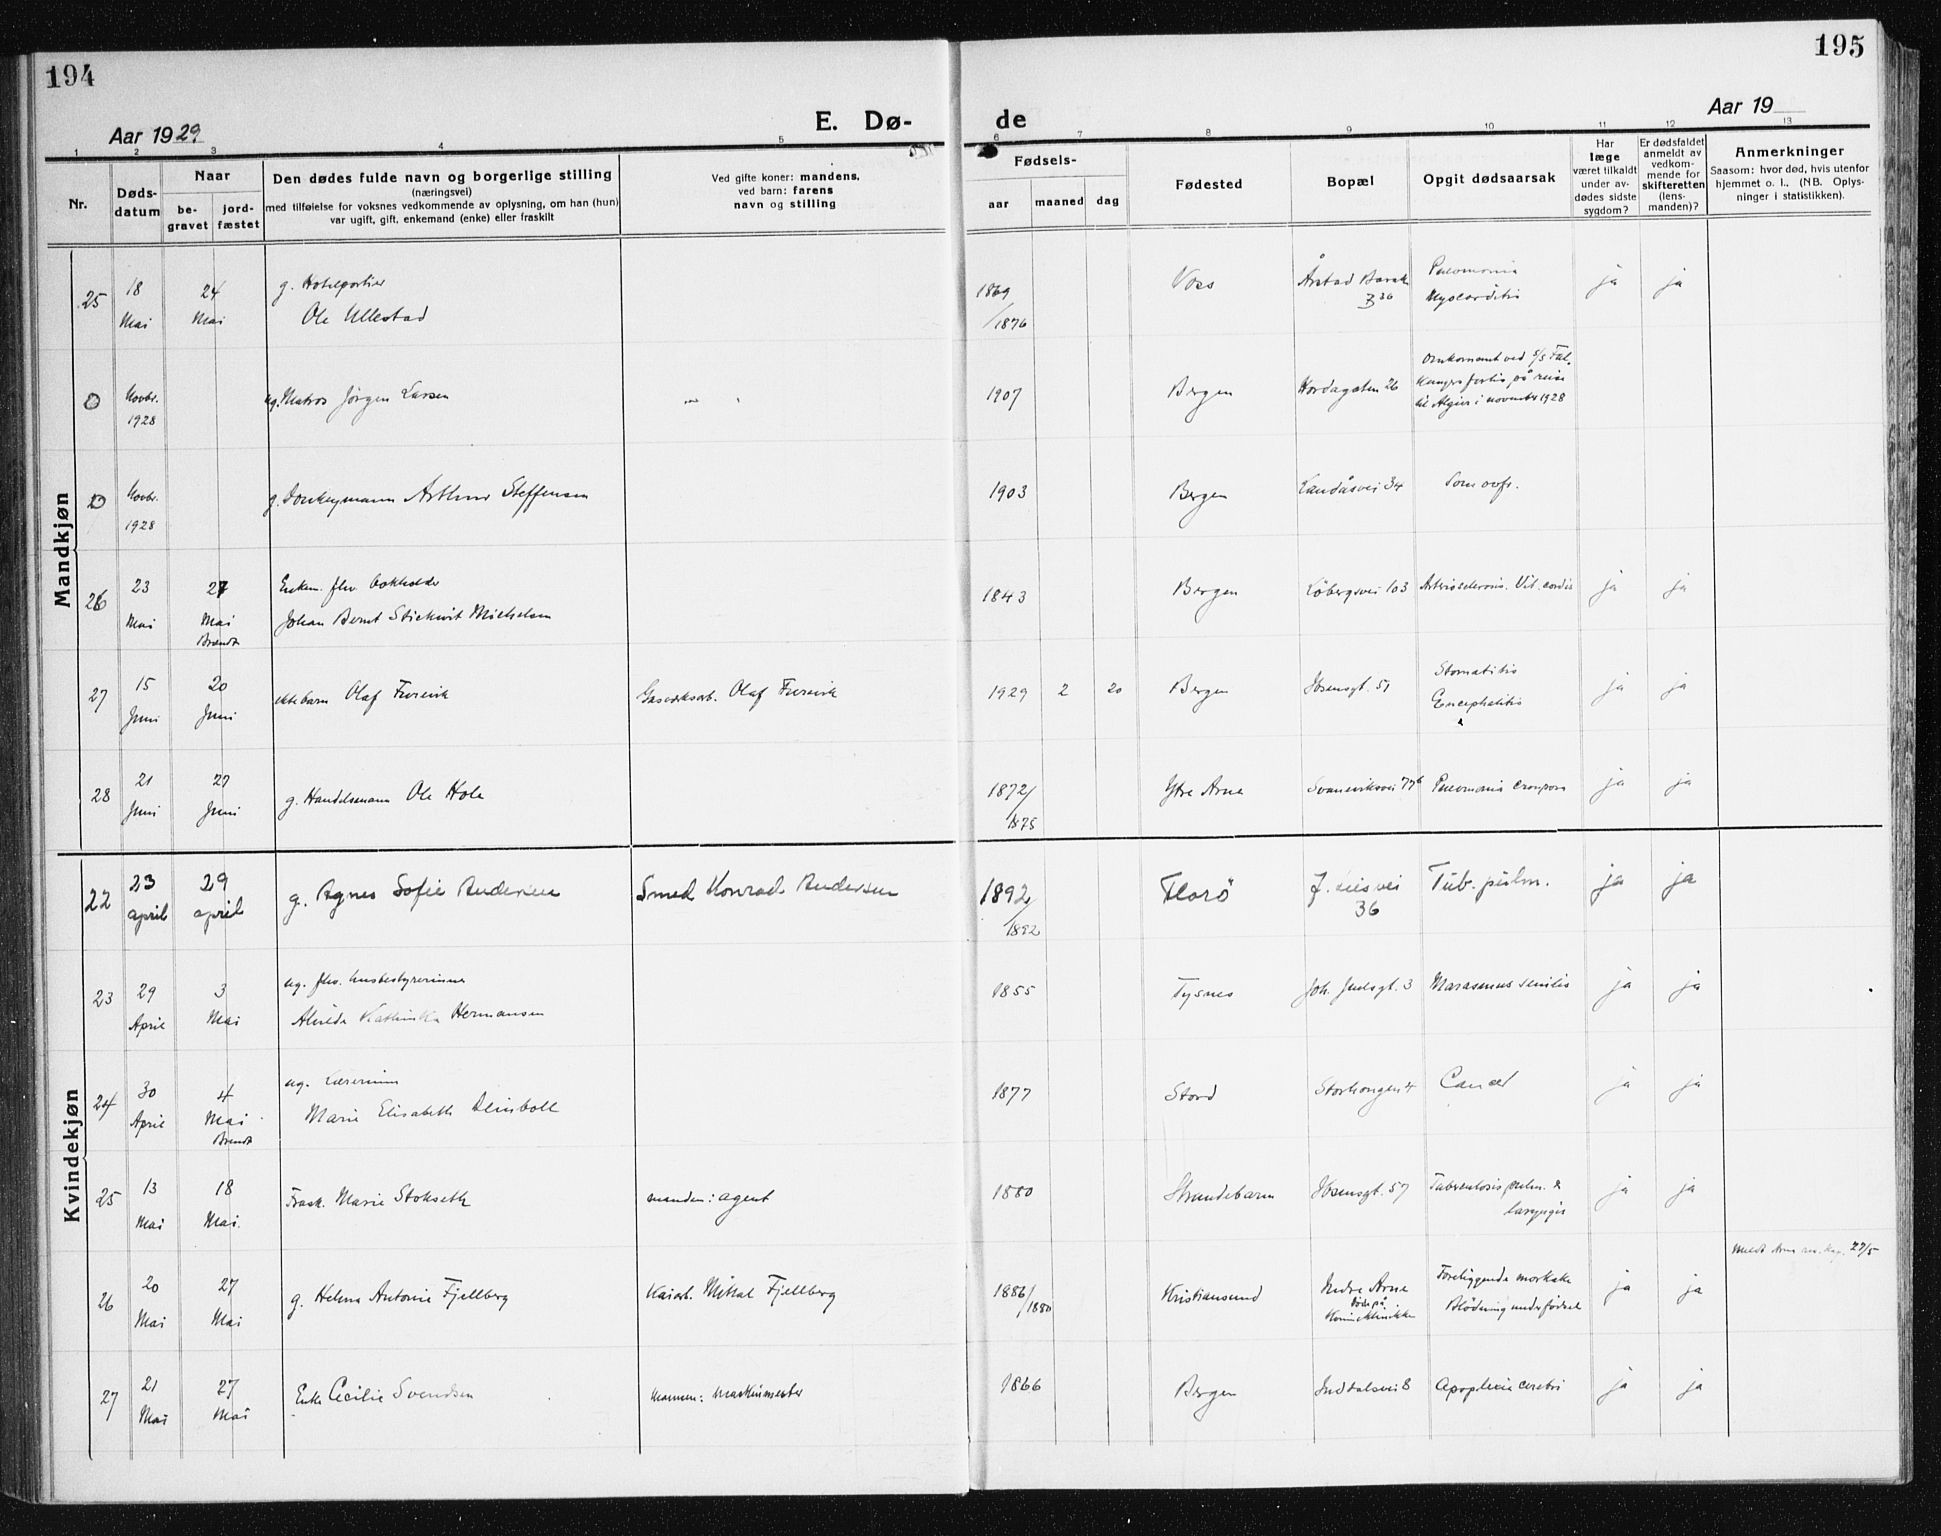 194
195
Aar 1929
E. Dø-
de
Aar 19
1 2 3 4 5 6 7 8 9 10 11 12 13
Nr.
Døds-
datum
Naar
be-
gravet
jord-
fæstet
Den dødes fulde navn og borgerlige stilling
(næringsvei)
med tilføielse for voksnes vedkommende av oplysning, om han (hun)
var ugift, gift, enkemand (enke) eller fraskilt
Ved gifte koner: mandens,
ved barn: farens
navn og stilling
Fødsels-
aar maaned dag
Fødested
Bopæl
Opgit dødsaarsak
Har
læge
været tilkaldt
under av-
dødes sidste
sygdom?
Er dødsfaldet
anmeldt av
vedkom-
mende for
skifteretten
(lens-
manden)?
Anmerkninger
Saasom: hvor død, hvis utenfor
hjemmet o. l., (NB. Oplys-
ninger i statistikken).
Mandkjøn
25 18 Mai 24 Mai g. Hotelportier
Ole Ullestad 1869/1876 Voss Årstad Barak B 36 Pneumonia
Myocarditis ja ja
0 Novbr. 1928 ug. Matros Jörgen Larsen 1907 Bergen Hordagaten 26 Omkommet ved s/s Fal-
kangers forlis på reise
til Algier i november 1928
0 Novbr. 1928 g. Donkeymann Arthur Steffensen 1903 Bergen Landåsvei 34 Som ovfr.
26 23 Mai 27 Mai Brændt Enkem. fhv. bokholder
Johan Bernt Stickwit Michelsen 1843 Bergen Löbergsvei 103 Arteriosclerosis. Vit. cordis ja ja
27 15 Juni 20 Juni ektebarn Olaf Furevik Gasverksarb. Olaf Furevik 1929 2 20 Bergen Ibsensgt. 51 Stomatitis
Encephalitis ja ja
28 21 Juni 27 Juni g. Handelsmann Ole Hole 1872/1875 Ytre Arna Svaneviksvei 77b Pneumonia crouposa ja ja
Kvindekjøn
22 23 april 29 april g. Agnes Sofie Andersen Smed Konrad Andersen 1892/1892 Florö J. Liesvei 36 Tub. pulm. ja ja
23 29 April 3 Mai ug. fhv. husbestyrerinne
Alvilda Kathinka Hermansen 1855 Tysnes Joh. Juelsgt. 3 Marasmus senilis ja ja
24 30 April 4 Mai Brændt ug. Lærerinne
Marie Elisabeth Deinboll 1877 Stord Storhaugen 4 Cancer ja ja
25 13 Mai 18 Mai. Frask. Marie Stokseth manden: agent 1880 Strandebarm Ibsensgt. 57 Tuberculosis pulm. &
laryngis ja ja
26 20 Mai 27 Mai g. Helma Antonie Fjellberg Kaiarb. Mikal Fjellberg 1886/1880 Kristiansund Indre Arna
död på
Kvinneklinikken Foreliggende morkake
Blödning under födsel ja ja Meldt Arna 27/5
27 21 Mai 27 Mai Enke Cecilie Svendsen Mannen: maskinmester 1866 Bergen Inddalsvei 8 Apoplexia cerebri ja ja